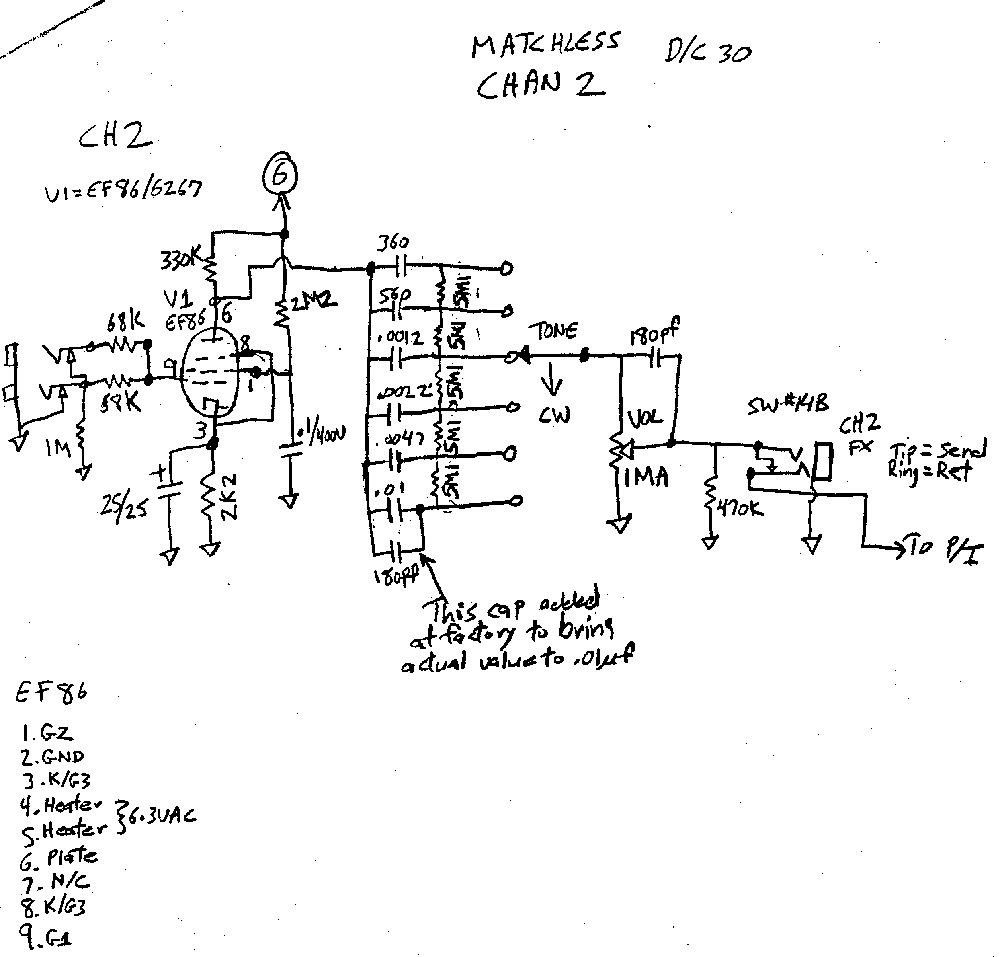 MATCHLESS D/C 30
CHAN 2
CH2
V1=EF86/6267
6
330K
V1
EF86
6
8
9
1
3
68K
68K
1M
25/25
+
2K2
2M2
.1/400V
360
56p
.0012
.0022
.0047
.01
180pf
5M1
5M1
5M1
5M1
5M1
TONE
CW
180pf
VOL
1MA
470K
SW #14B
CH2
FX
Tip = Send
Ring = Ret
To P/I
This cap added
at factory to bring
actual value to .01µf
EF86
1. G2
2. GND
3. K/G3
4. Heater
5. Heater
} 6.3VAC
6. Plate
7. N/C
8. K/G3
9. G1